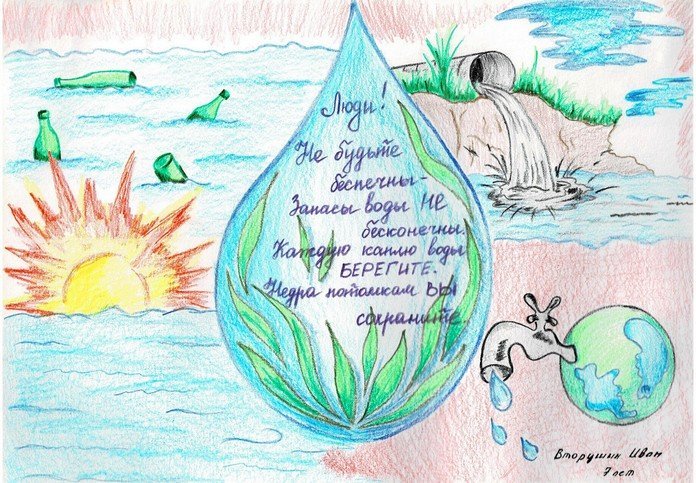 Люди!
Не будьте
беспечны-
Запасы воды НЕ
бесконечны.
Каждую каплю воды
БЕРЕГИТЕ.
Недра потомкам ВЫ
сохраните.
Вторушин Иван
7 лет